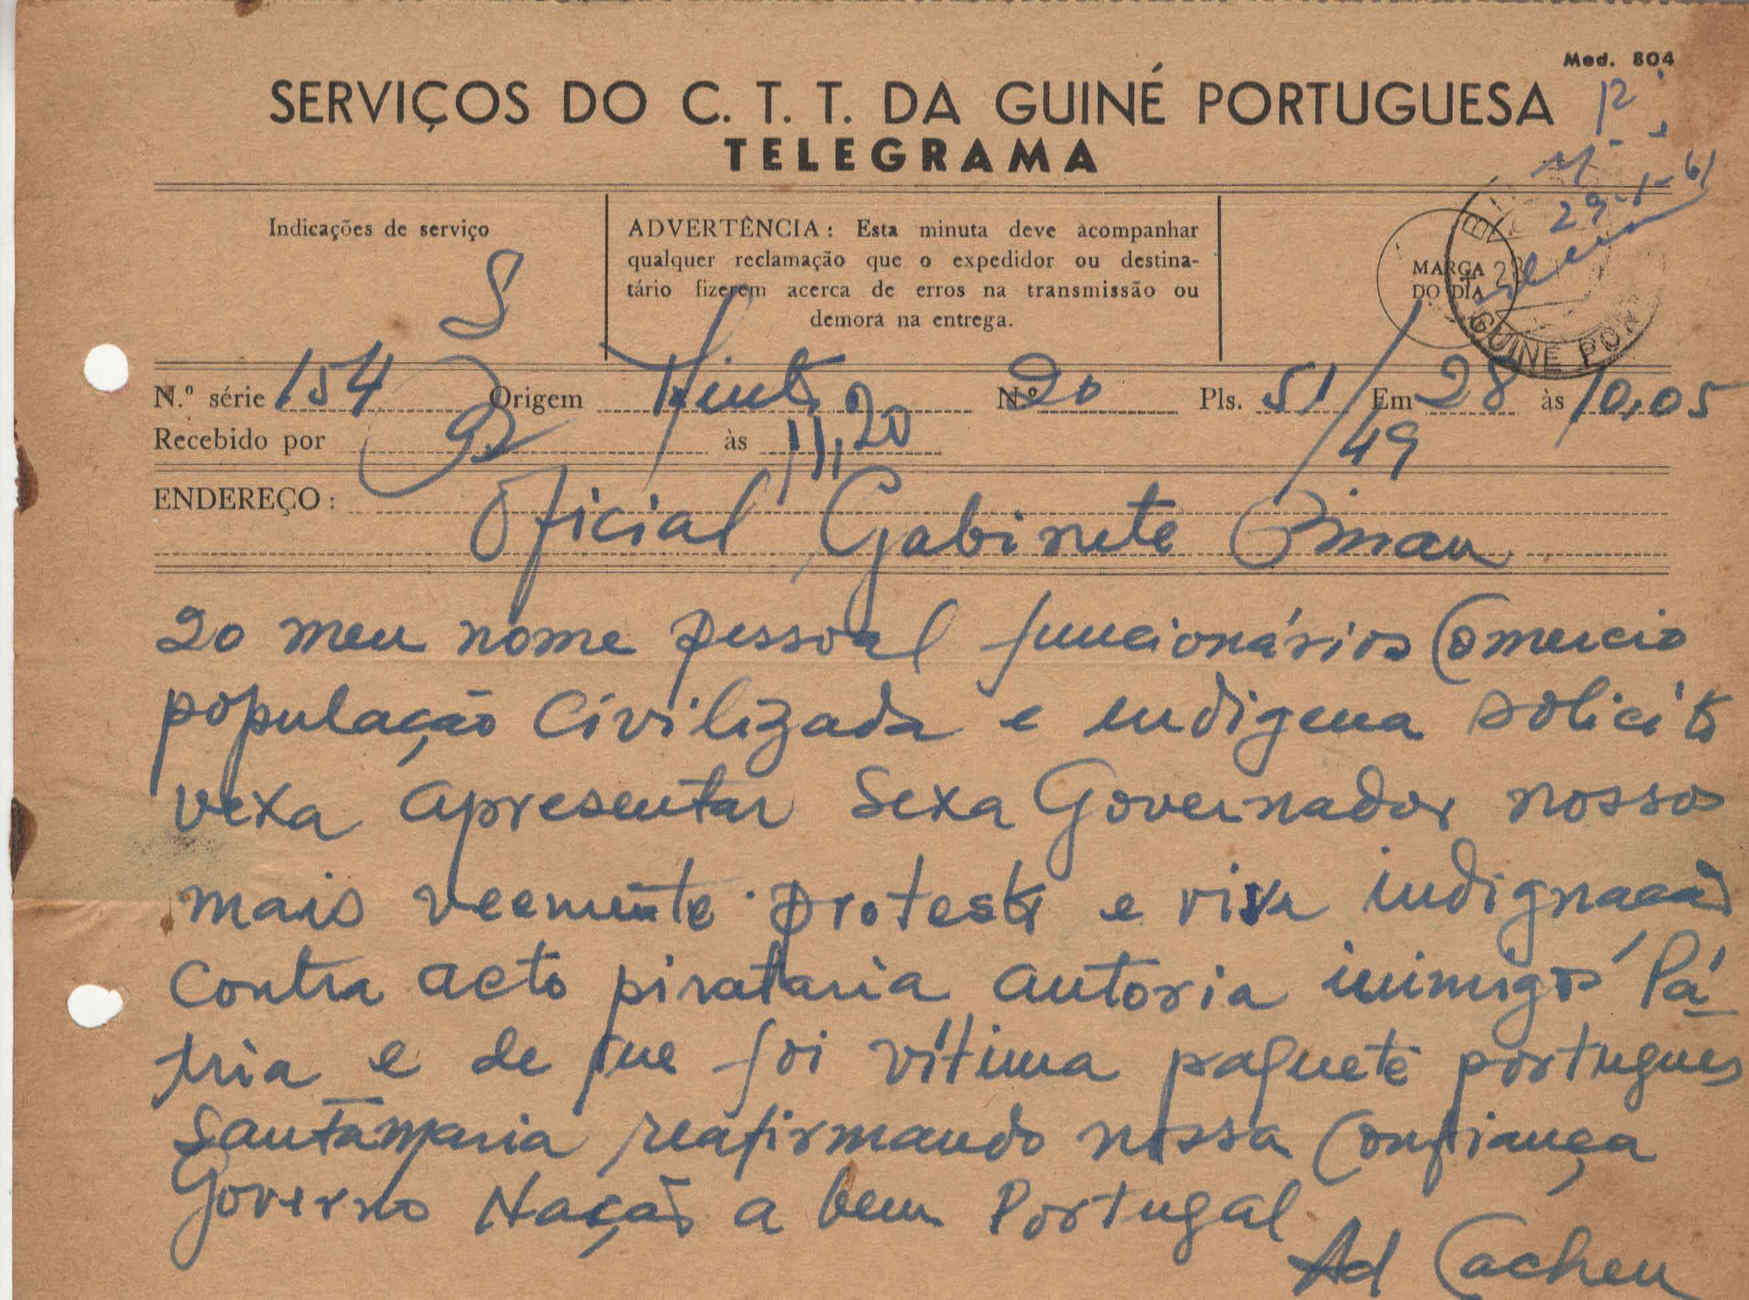 Mod. 804
SERVIÇOS DO C. T. T. DA GUINÉ PORTUGUESA
TELEGRAMA
29-1-61
Indicações de serviço
S
ADVERTÊNCIA: Esta minuta deve acompanhar
qualquer reclamação que o expedidor ou destina-
tário fizerem acerca de erros na transmissão ou
demora na entrega.
MARCA
DO DIA
GUINÉ POR
N.º série 154 Origem N.º 20 Pls. 51/49 Em 28 às 10,05
Recebido por às 11,20
ENDEREÇO:
Oficial Gabinete Bissau
20 meu nome pessoal funcionários Comercio
população civilizada e indigena solicito
vexa apresentar Sexa Governador nossos
mais veemente protesto e viva indignação
contra acto pirataria autoria inimigos Pá-
tria e de que foi vítima paquete portugues
Santamaria reafirmando nossa confiança
Governo Nação a bem Portugal
Ad Cacheu